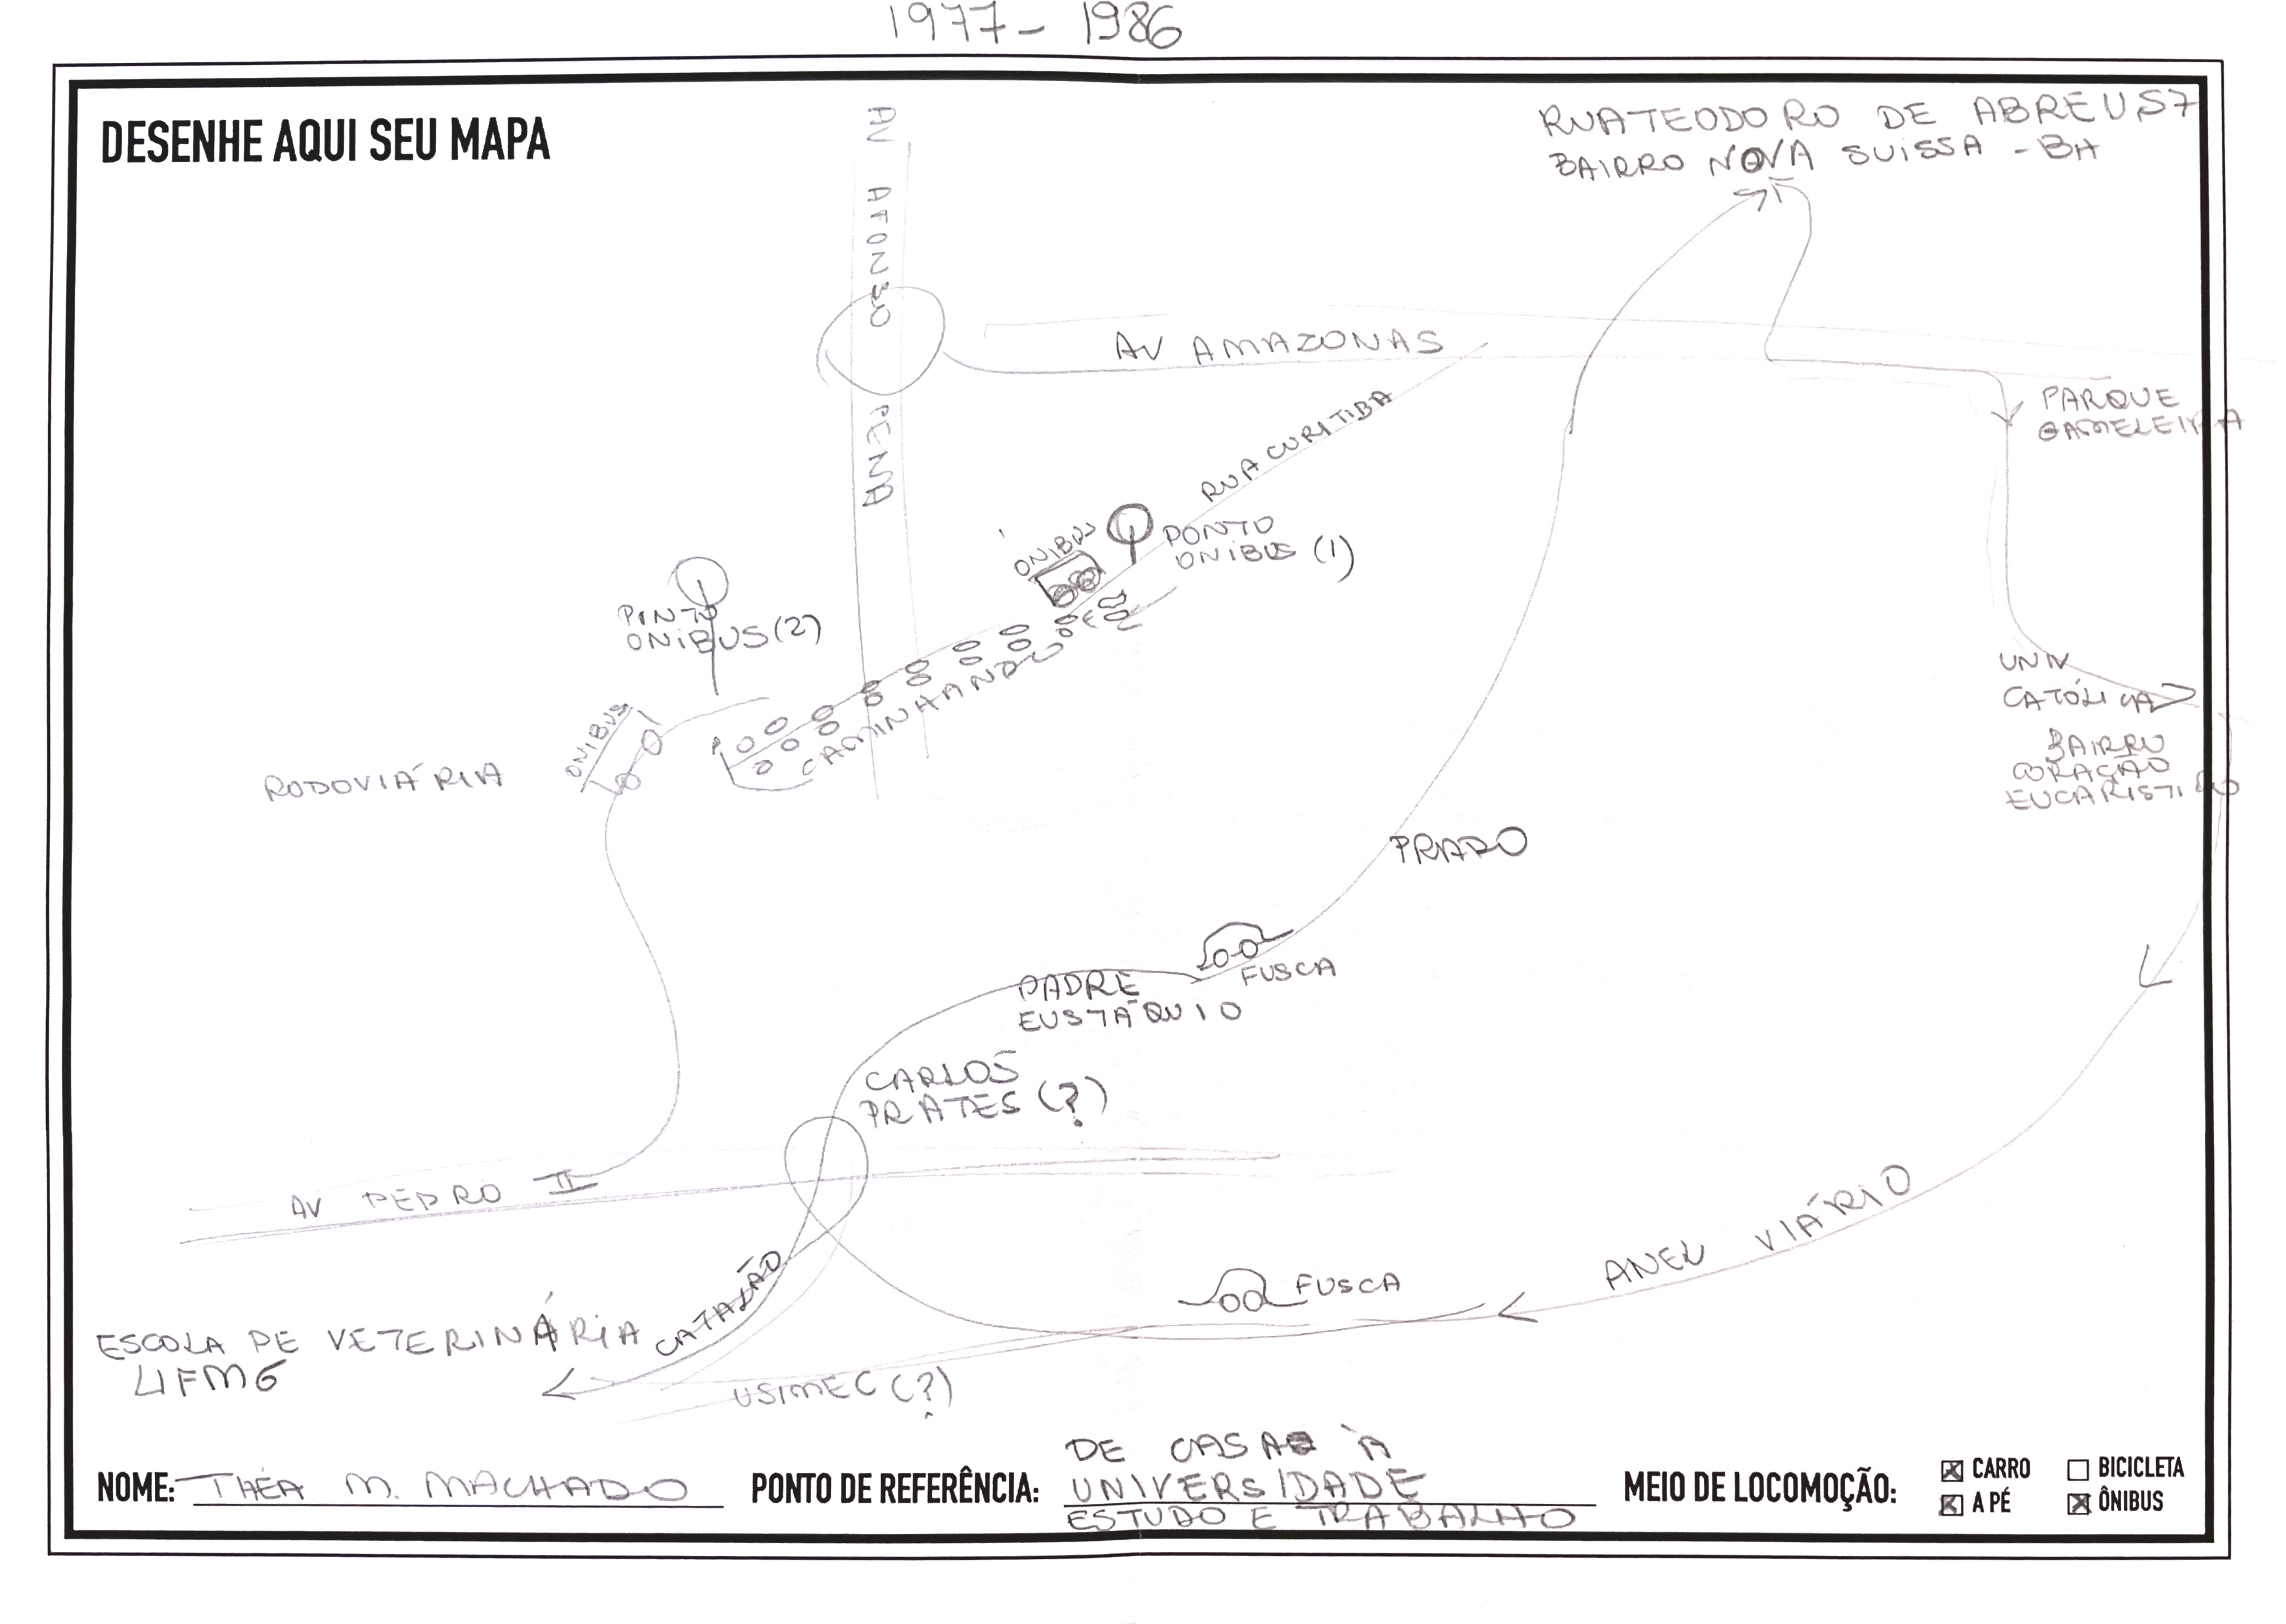 1977 - 1986
DESENHE AQUI SEU MAPA
RUA TEODORO DE ABREU 57
BAIRRO NOVA SUISSA - BH
AV AFONSO PENA
AV AMAZONAS
PARQUE
GAMELEIRA
RUA CURITIBA
ONIBUS
PONTO
ONIBUS (1)
PONTO
ONIBUS (2)
CAMINHANDO
UNIV
CATÓLICA
BAIRRO
CORAÇÃO
EUCARISTICO
ONIBUS
RODOVIÁRIA
PRADO
FUSCA
PADRE
EUSTÁQUIO
CARLOS
PRATES (?)
AV PEDRO II
ANEL VIÁRIO
FUSCA
CATALÃO
ESCOLA DE VETERINÁRIA
UFMG
USIMEC (?)
NOME: THÉA M. MACHADO
PONTO DE REFERÊNCIA: DE CASA À
UNIVERSIDADE
ESTUDO E TRABALHO
MEIO DE LOCOMOÇÃO:
CARRO
BICICLETA
A PÉ
ÔNIBUS